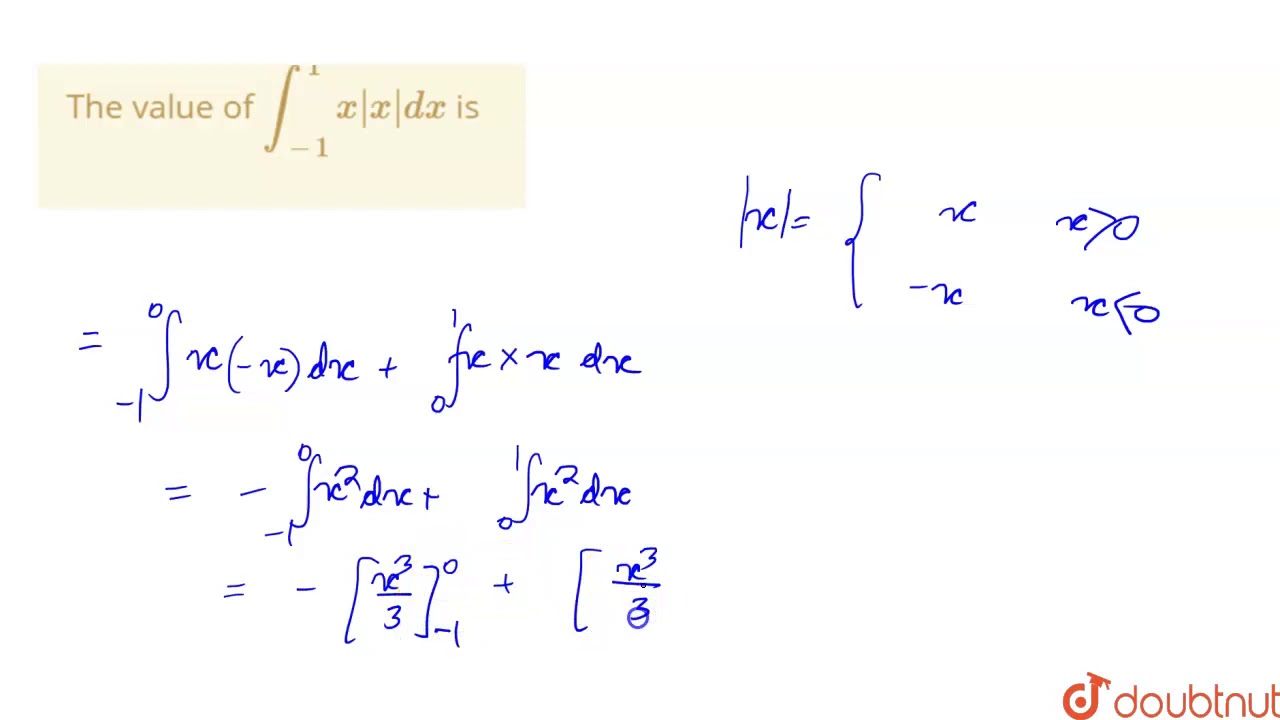 The value of ∫_{-1}^{1} x|x|dx is
|x| = { x x>0
-x x<0
= ∫_{-1}^{0} x(-x) dx + ∫_{0}^{1} x × x dx
= - ∫_{-1}^{0} x² dx + ∫_{0}^{1} x² dx
= - [x³/3]_{-1}^{0} + [x³/3
doubtnut